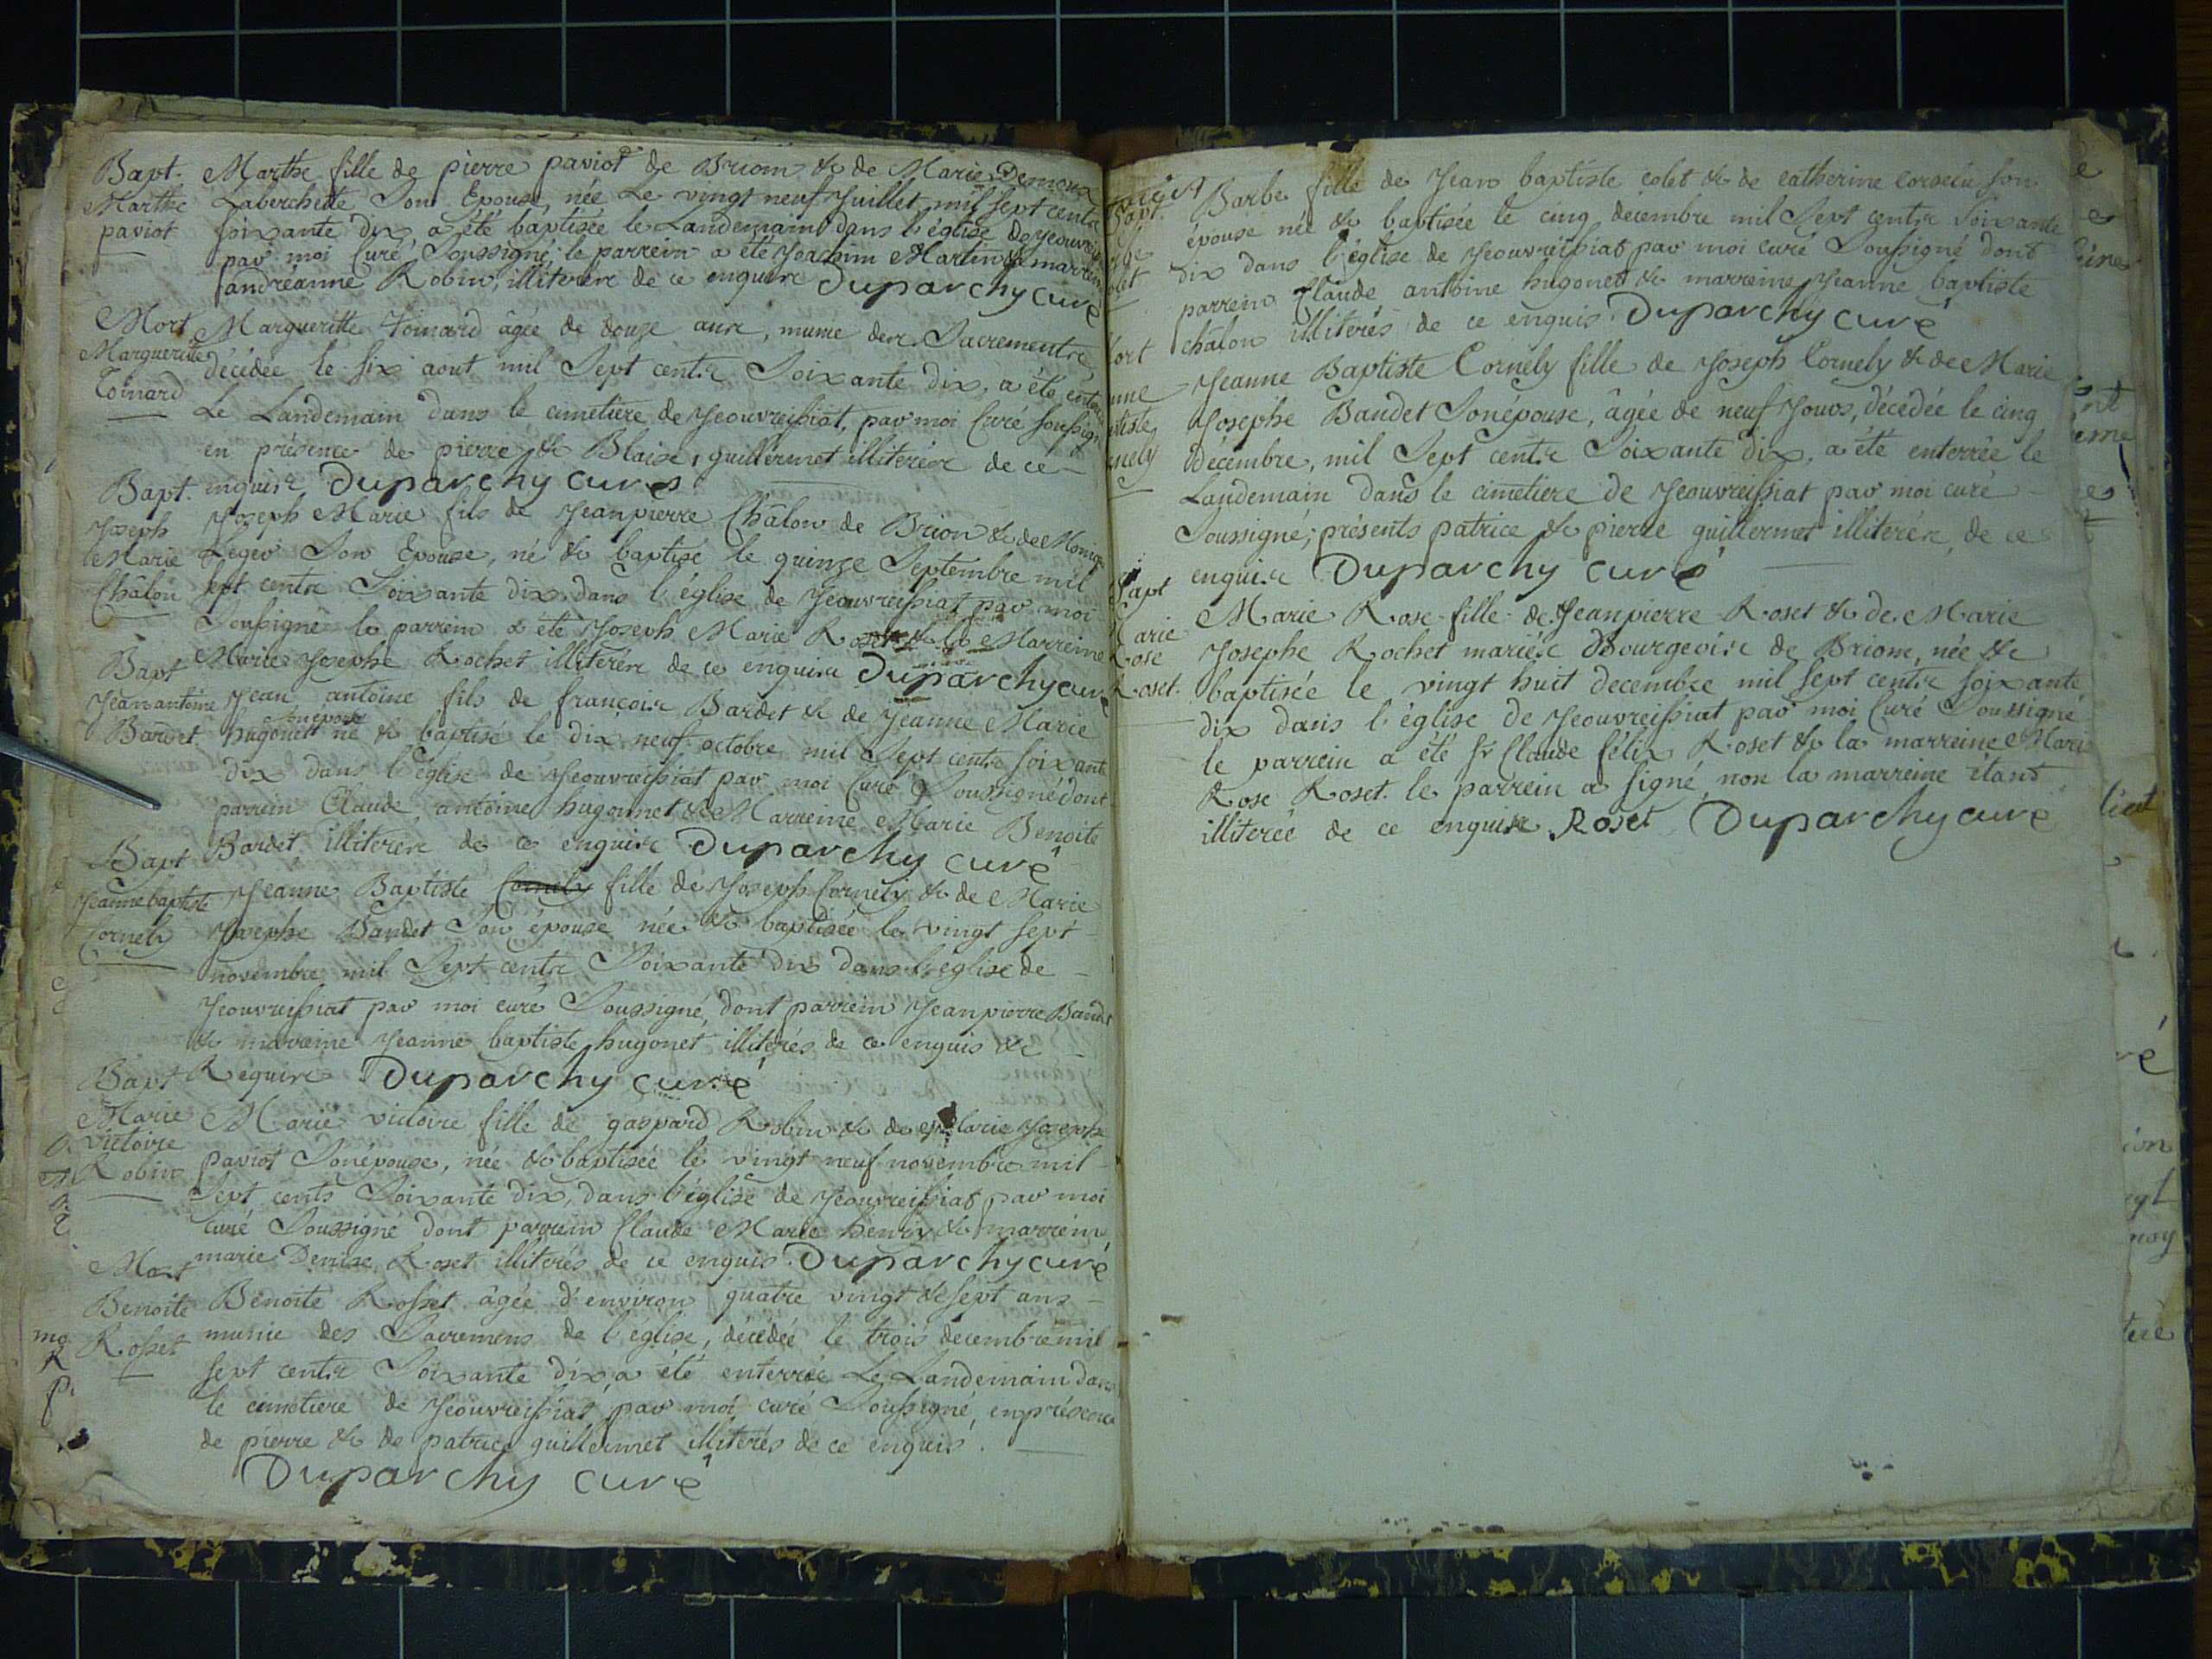 Bapt. Marthe fille de pierre paviot de Briom & de Marie Demoux
Marthe Laberchede Son Epouse, née Le vingt neuf Juillet mil sept cents
paviot soixante dix a été baptisée le Landemain dans l'église de Jeouvreissiat
par moi Curé Soussigné; le parrein a été Joachim Martin & marreine
andréanne Robin, illiterére de ce enquire Duparchy curé
Mort Margueritte Toinard âgée de douze ans, munie des Sacrements
Margueritte décédée le six aout mil Sept cents Soixante dix, a été enterrée
Toinard Le Landemain dans le cimetiere de Jeouvreissiat, par moi Curé soussigné
en présence de pierre & Blaise guillermet illiterére de ce
enquire Duparchy curé
Bapt. Joseph Marie fils de Jeanpierre Châlon de Brion & de Monique
Joseph Leger Son Epouse, né & baptisé le quinze Septembre mil
Marie sept cents Soixante dix dans l'église de Jeouvreissiat par moi
Châlon Soussigné le parrein a été Joseph Marie Roset & la Marreine
Marie Josephe Rochet illiterére de ce enquire Duparchy curé
Bapt Jean antoine fils de françois Bardet & de Jeanne Marie
Jean antoine hugonet son épouse né & baptisé le dix neuf octobre mil Sept cents soixante
Bardet dix dans l'église de Jeouvreissiat par moi Curé Soussigné dont
parrein Claude antoine hugonnet & Marreine Marie Benoite
Bardet illiterére de ce enquire Duparchy curé
Bapt Jeanne Baptiste Cornely fille de Joseph Cornely & de Marie
Jeanne baptiste Josephe Bandet Son épouse née & baptisée le vingt sept
Cornely novembre mil Sept cents Soixante dix dans l'église de
Jeouvreissiat par moi curé Soussigné, dont parrein Jeanpierre Bandet
& marreine Jeanne baptiste hugonet illiterés de ce enquis &
Require Duparchy curé
Bapt Marie victoire fille de gaspard Robin & de Marie Josephe
Marie victoire paviot Sonépouse, née & baptisée le vingt neuf novembre mil
Robin Sept cents Soixante dix, dans l'église de Jeouvreissiat par moi
Curé Soussigné dont parrein Claude Marie henry & marreine
marie Denise Roset illiterés de ce enquis Duparchy curé
Mort Benoite Rosset âgée d'environ quatre vingt & sept ans
Benoite munie des Sacremens de l'église, décédée le trois decembre mil
Rosset sept cents Soixante dix a été enterrée Le Landemain dans
le cimetiere de Jeouvreissiat par moi curé Soussigné, en présence
de pierre & de patrice guillermet illiterés de ce enquis.
Duparchy curé
Barbe fille de Jean baptiste colet & de catherine corselu son
épouse née & baptisée le cinq decembre mil Sept cents Soixante
dix dans l'église de Jeouvreissiat par moi curé Soussigné dont
parrein Claude antoine hugonet & marreine Jeanne baptiste
châlon illiterés de ce enquis Duparchy curé
Jeanne Baptiste Cornely fille de Joseph Cornely & de Marie
Josephe Bandet Sonépouse, âgée de neuf Jours, décédée le cinq
décembre, mil Sept cents Soixante dix, a été enterrée le
Landemain dans le cimetiere de Jeouvreissiat par moi curé
Soussigné; présents patrice & pierre guillermet illiterére, de ce
enquire Duparchy curé
Bapt Marie Rose fille de Jeanpierre Roset & de Marie
Marie Josephe Rochet mariés Bourgeois de Briom, née &
Rose baptisée le vingt huit decembre mil sept cents soixante
Roset. dix dans l'église de Jeouvreissiat par moi Curé Soussigné
le parrein a été Sr Claude félix Roset & la marreine Marie
Rose Roset. le parrein a signé, non la marreine étant
illiterée de ce enquire Roset Duparchy curé